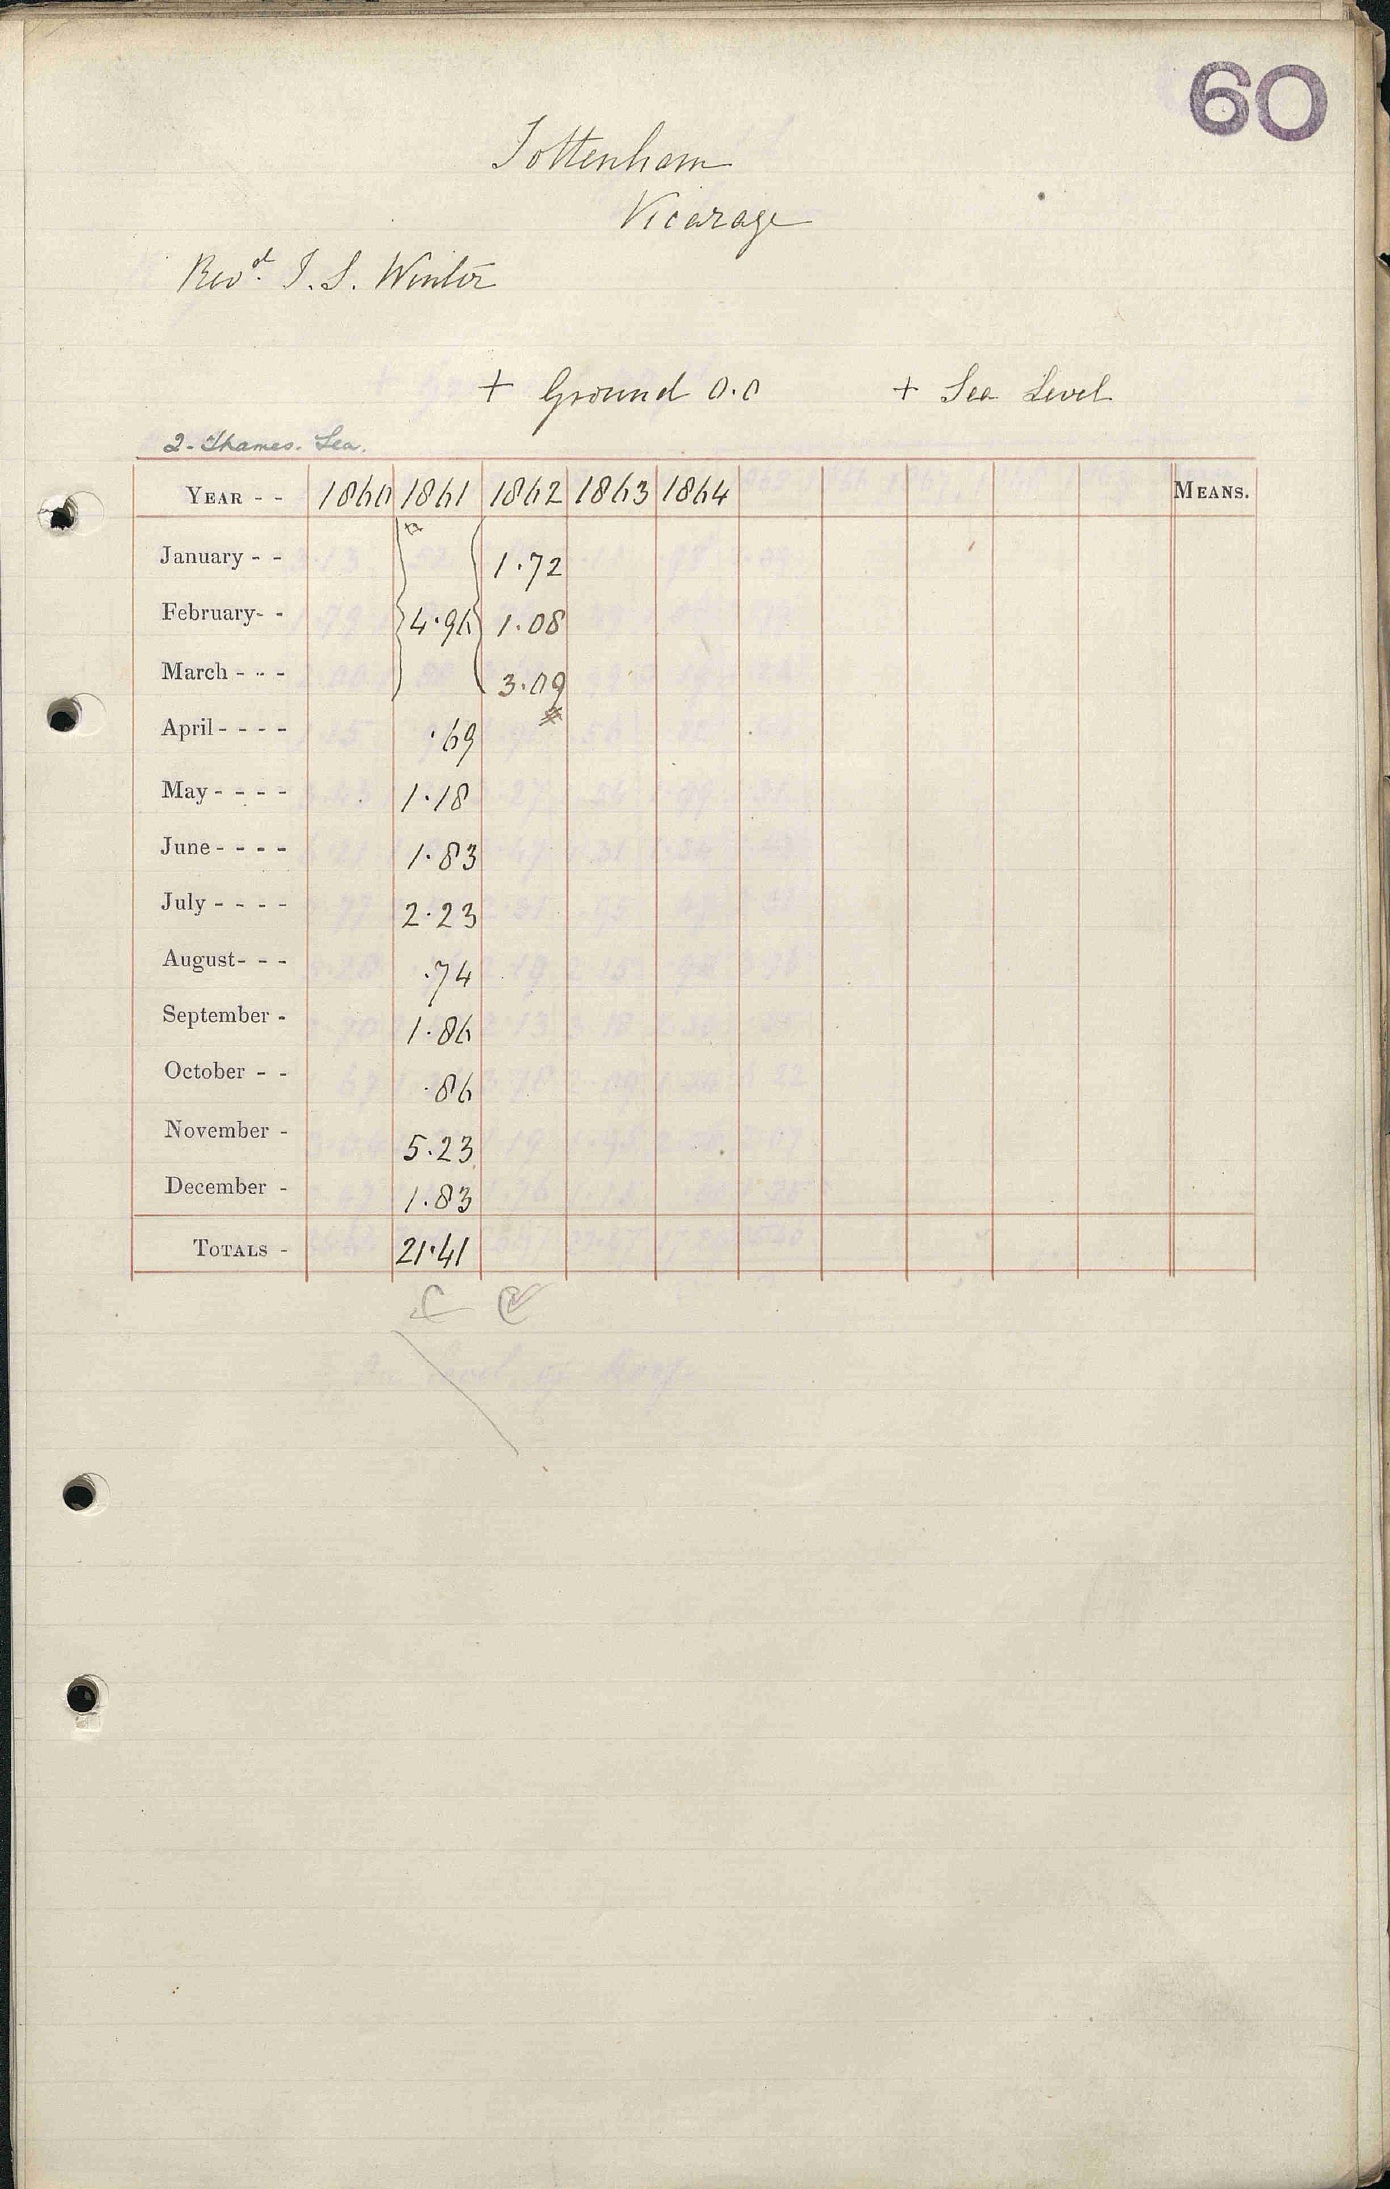 60
Tottenham
Vicarage
Revd. T. S. Winter
+ Ground 0.0 + Sea Level
2 - Thames. Lea.
YEAR - - 1860 1861 1862 1863 1864 MEANS.
January - - 1.72
February- - 4.96 1.08
March - - - 3.09
April - - - - .69
May - - - - 1.18
June - - - - 1.83
July - - - - 2.23
August- - - .74
September - 1.86
October - - .86
November - 5.23
December - 1.83
TOTALS - 21.41